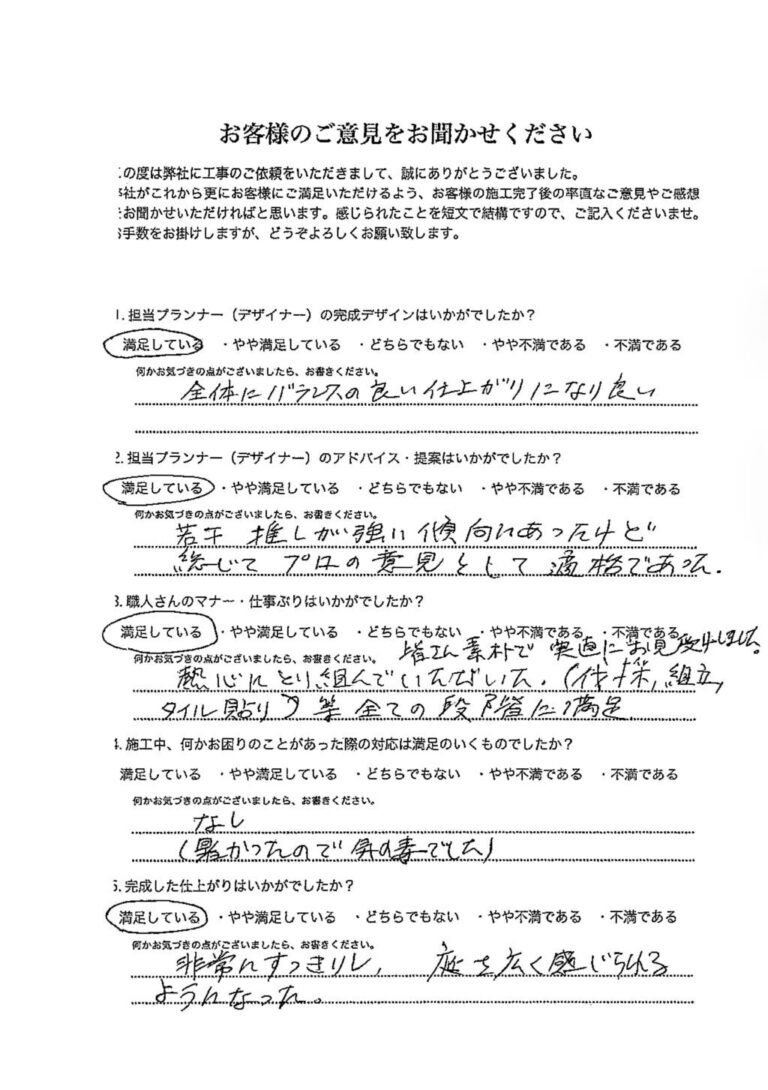 お客様のご意見をお聞かせください
の度は弊社に工事のご依頼をいただきまして、誠にありがとうございました。
社がこれから更にお客様にご満足いただけるよう、お客様の施工完了後の平直なご意見やご感想
お聞かせいただければと思います。感じられたことを短文で結構ですので、ご記入くださいませ。
手数をお掛けしますが、どうぞよろしくお願い致します。
1. 担当プランナー（デザイナー）の完成デザインはいかがでしたか？
満足している ・やや満足している ・どちらでもない ・やや不満である ・不満である
何かお気づきの点がございましたら、お書きください。
全体にバランスの良い仕上がりになり良い
2. 担当プランナー（デザイナー）のアドバイス・提案はいかがでしたか？
満足している ・やや満足している ・どちらでもない ・やや不満である ・不満である
何かお気づきの点がございましたら、お書きください。
若干 推しが強い傾向にあったけど
総じて プロの意見として 適格であった.
3. 職人さんのマナー・仕事ぶりはいかがでしたか？
満足している ・やや満足している ・どちらでもない ・やや不満である ・不満である
何かお気づきの点がございましたら、お書きください。 皆さん素朴で 実直にお見受けしました。
熱心にとり組んでいただいた. (伐採, 組立,
タイル貼り) 等 全ての段階に満足
4. 施工中、何かお困りのことがあった際の対応は満足のいくものでしたか？
満足している ・やや満足している ・どちらでもない ・やや不満である ・不満である
何かお気づきの点がございましたら、お書きください。
なし
(暑かったので 気の毒でした)
5. 完成した仕上がりはいかがでしたか？
満足している ・やや満足している ・どちらでもない ・やや不満である ・不満である
何かお気づきの点がございましたら、お書きください。
非常にすっきりし, 庭を広く感じられる
ようになった。